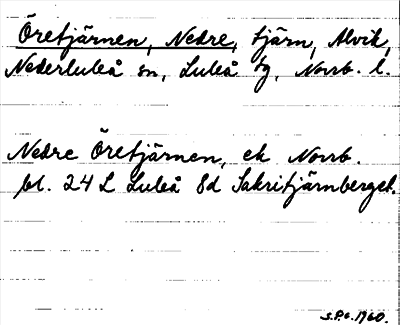 Öretjärnen, Nedre, tjärn, Alvik,
Nederluleå sn, Luleå tg, Norrb. l.
Nedre Öretjärnen, ek Norrb.
bl. 24 L Luleå 8d Sakritjärnberget.
S.P.G. 1960.